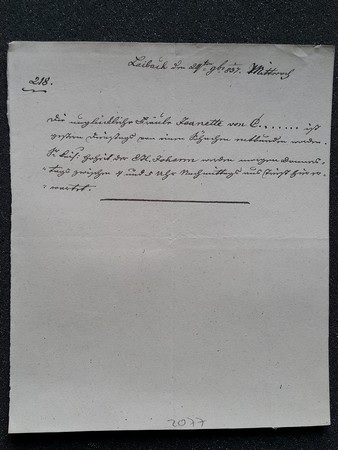 Laibach den 29ten 9b 837. Mittwoch
218.
Die unglückliche Fräule Jeanette von C....... ist
gestern Dienstags von einem Knaben entbunden worden.
S. kais. Hoheit der EH. Johann werden morgen Donners-
tags zwischen 4 und 5 Uhr Nachmittags aus Triest hier er-
wartet.
2077